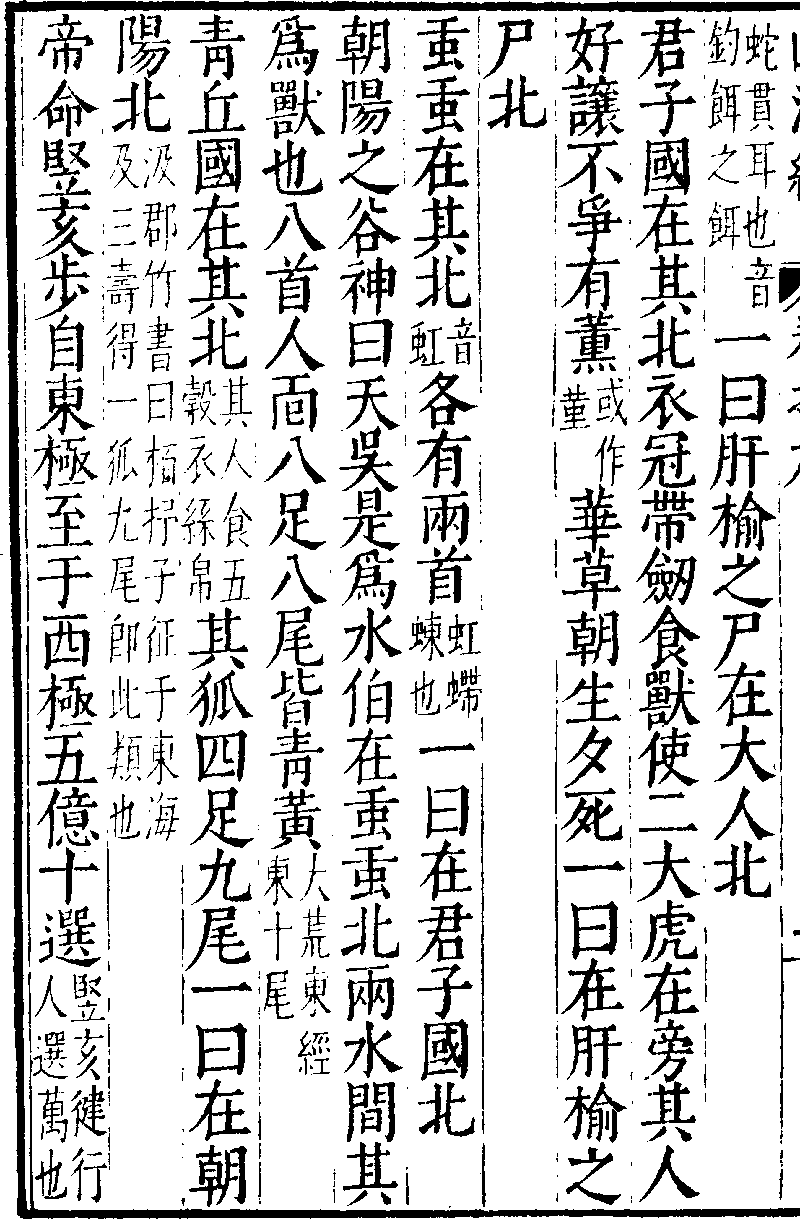 蛇貫耳也音釣餌之餌一曰肝榆之尸在大人北
君子國在其北衣冠帶劒食獸使二大虎在旁其人
好讓不爭有薰或作菫華草朝生夕死一曰在肝榆之
尸北
𧈫𧈫在其北音虹各有兩首虹螮蝀也一曰在君子國北
朝陽之谷神曰天吳是爲水伯在𧈫𧈫北兩水間其
爲獸也八首人面八足八尾皆青黃大荒東經東十尾
青丘國在其北其人食五穀衣絲帛其狐四足九尾一曰在朝
陽北汲郡竹書曰栢杼子征于東海及三壽得一狐九尾即此類也
帝命竪亥步自東極至于西極五億十選竪亥健行人選萬也